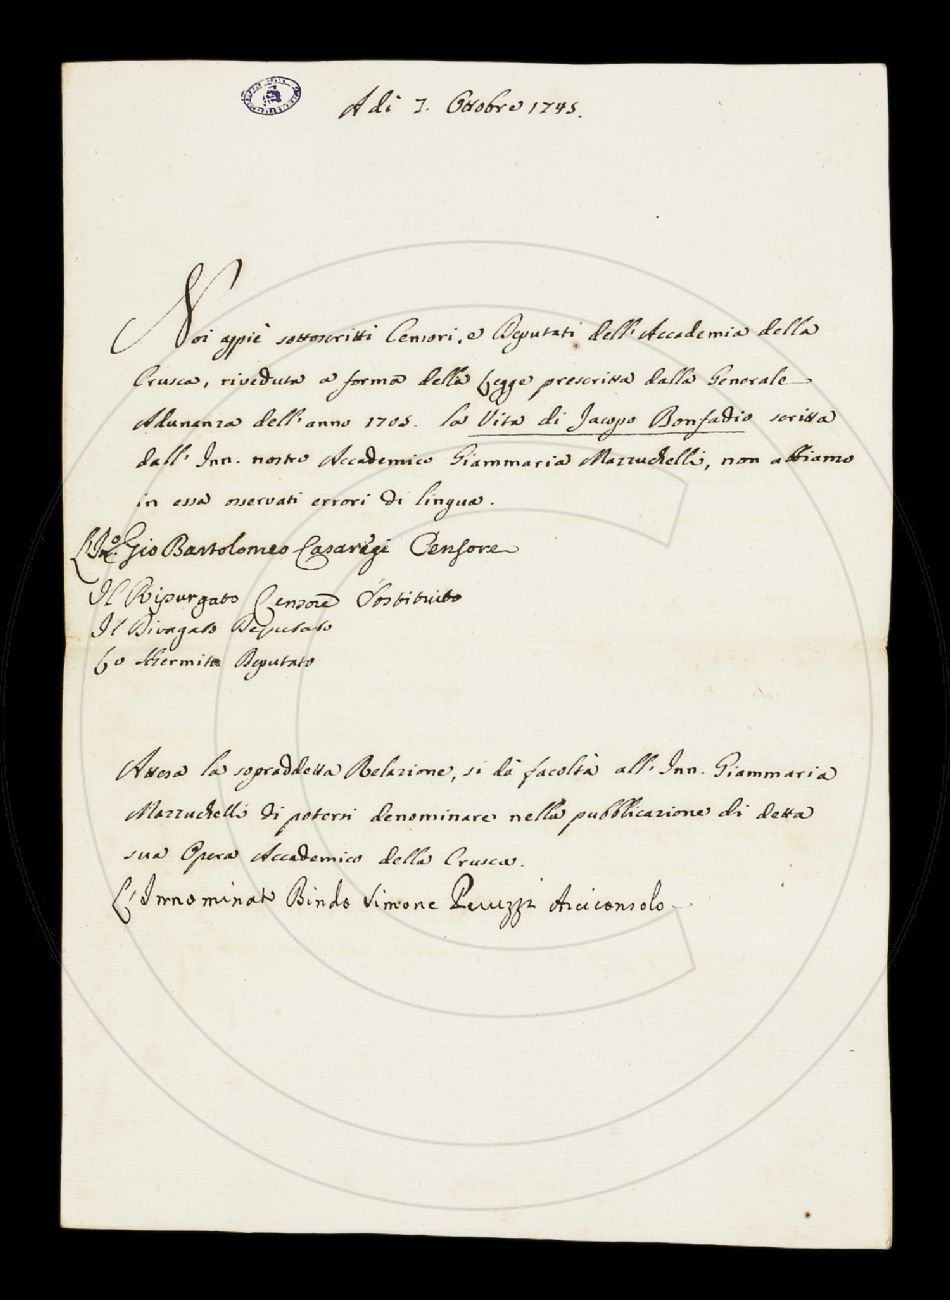 A dì 7. Ottobre 1745.
Noi appiè sottoscritti Censori, e Deputati dell'Accademia della
Crusca, riveduta a forma della Legge prescritta dalla Generale
Adunanza dell'anno 1705. la Vita di Jacopo Bonfadio scritta
dall'Inn. nostro Accademico Giammaria Mazzuchelli, non abbiamo
in essa osservati errori di lingua.
Gio Bartolomeo Casaregi Censore
Il Ripurgato Censore Sostituito
Il Divagato Deputato
Lo Schermito Deputato
Attesa la sopraddetta Relazione, si dà facoltà all'Inn. Giammaria
Mazzuchelli di potersi denominare nella pubblicazione di detta
sua Opera Accademico della Crusca.
L'Innominato Bindo Simone Peruzzi Arciconsolo